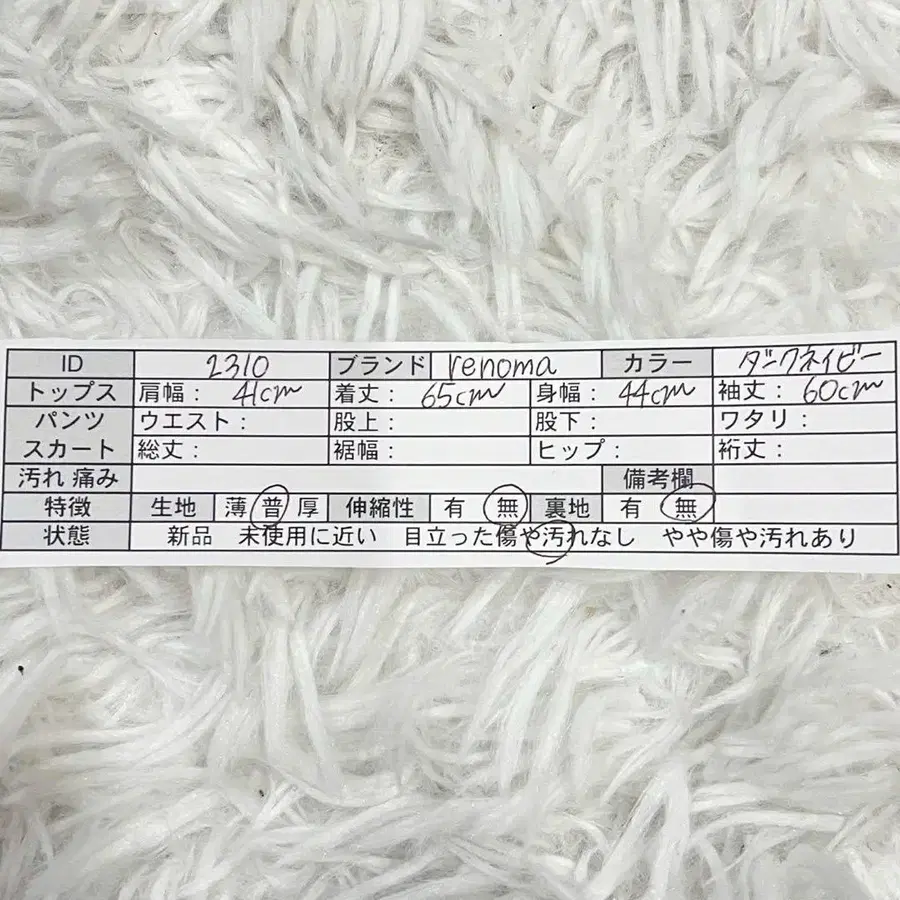 ID 2310 ブランド renoma カラー ダークネイビー
トップス 肩幅： 41cm 着丈： 65cm 身幅： 44cm 袖丈： 60cm
パンツ ウエスト： 股上： 股下： ワタリ：
スカート 総丈： 裾幅： ヒップ： 裄丈：
汚れ 痛み 備考欄
特徴 生地 薄 普 厚 伸縮性 有 無 裏地 有 無
状態 新品 未使用に近い 目立った傷や汚れなし やや傷や汚れあり